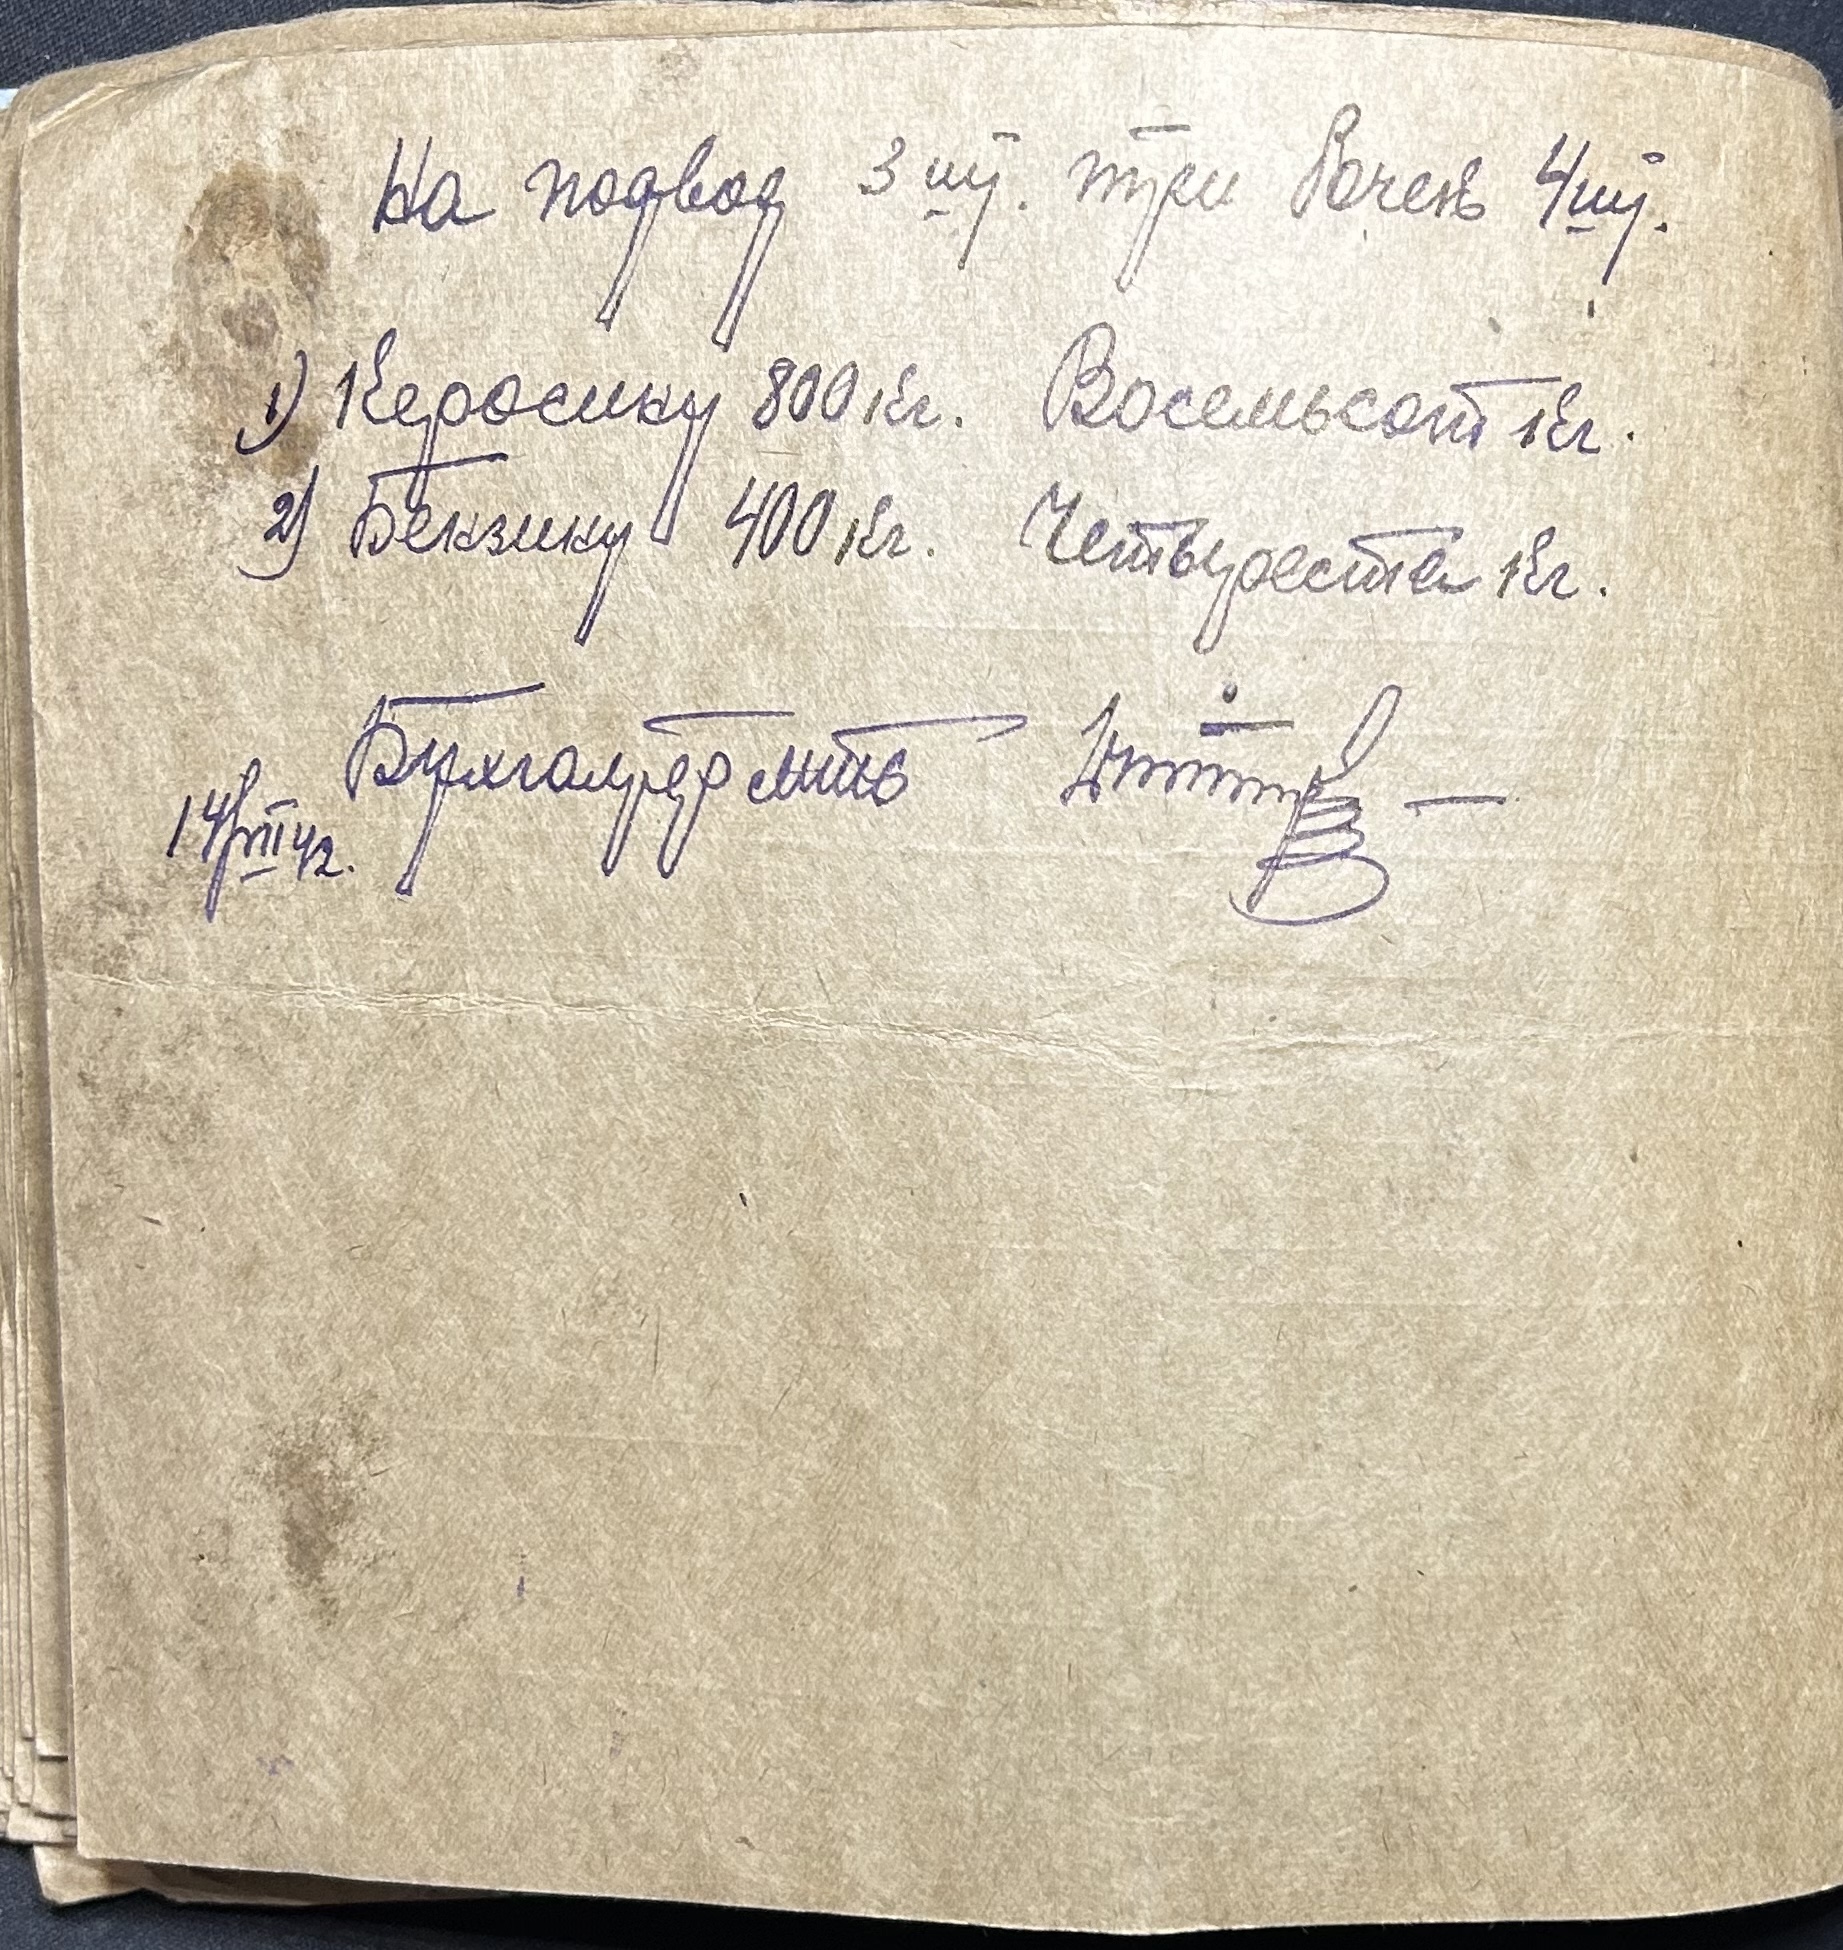 На подвод 3 шт. три бочек 4 шт.
1) Керосину 800 кг. Восемьсот кг.
2) Бензину 400 кг. Четыреста кг.
Бухгалтер
14/VII 42.